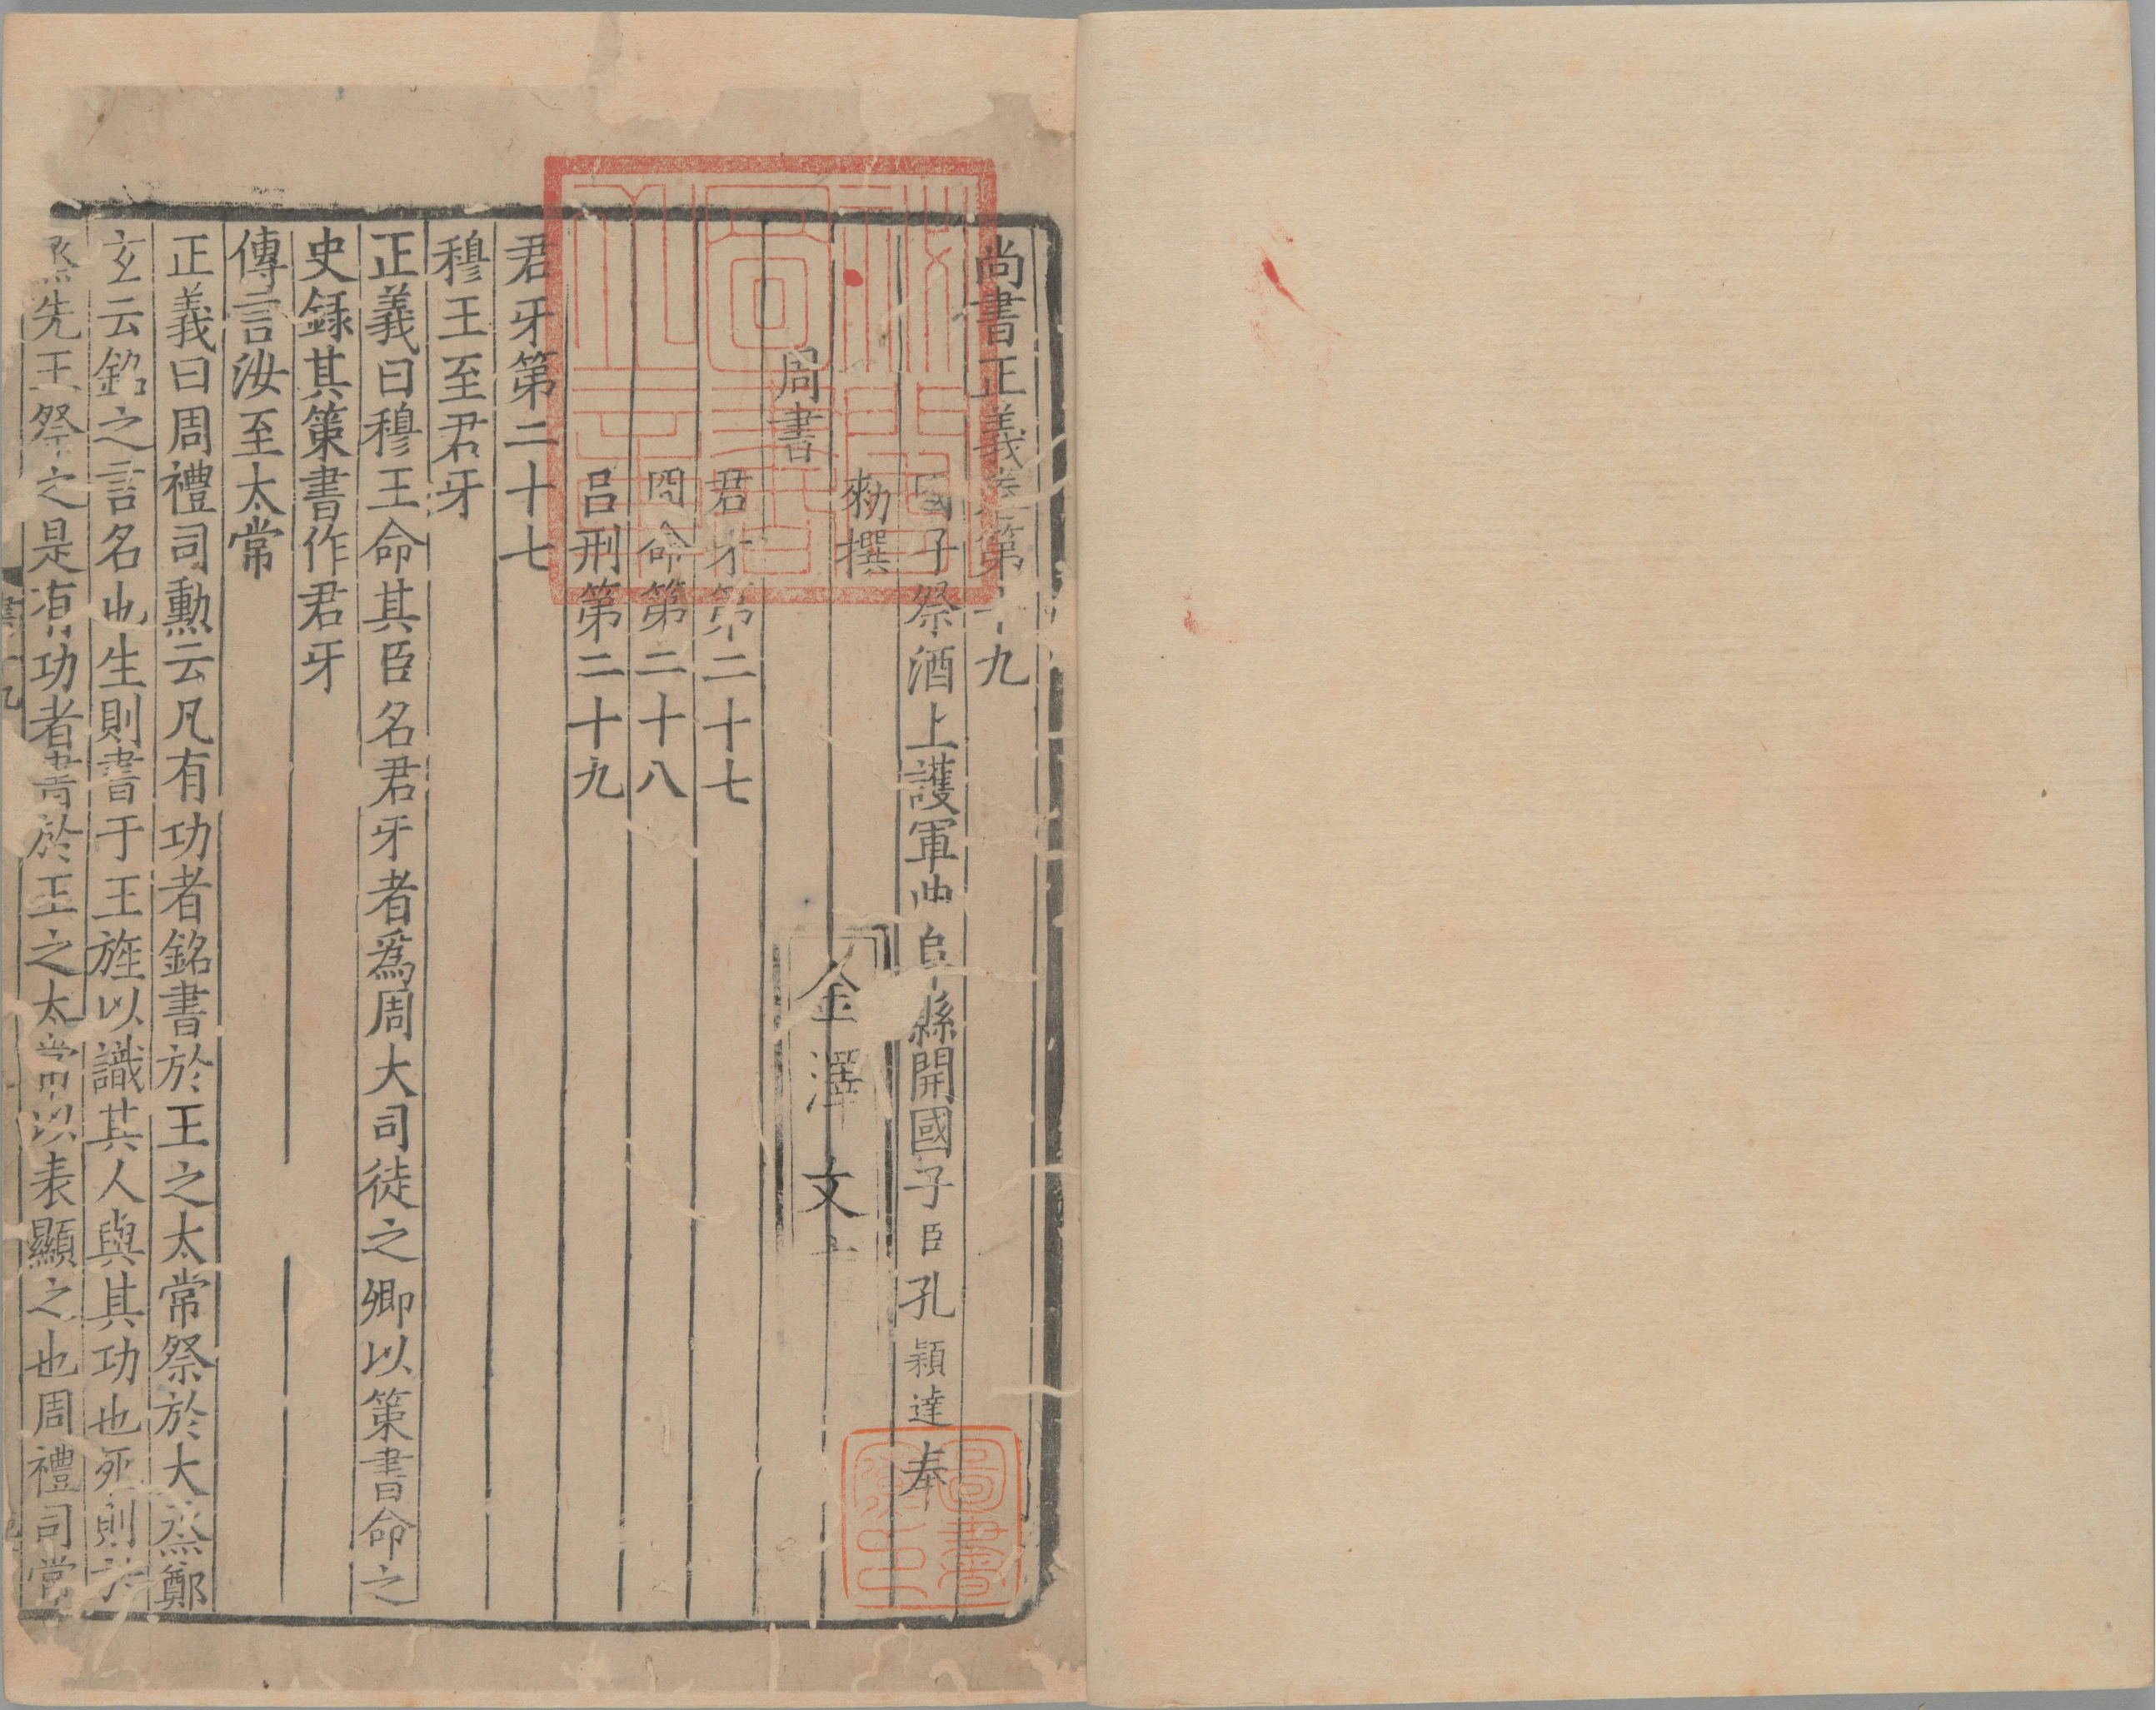 尚書正義卷第十九
國子祭酒上護軍曲阜縣開國子臣孔穎達奉
勑撰
周書
君牙第二十七
冏命第二十八
呂刑第二十九
君牙第二十七
穆王至君牙
正義曰穆王命其臣名君牙者爲周大司徒之卿以策書命之
史録其策書作君牙
傳言汝至太常
正義曰周禮司勳云凡有功者銘書於王之太常祭於大烝鄭
玄云銘之言名也生則書于王旌以識其人與其功也死則於
烝先王祭之是有功者書於王之太常以表顯之也周禮司常
金澤文
圖書寮印